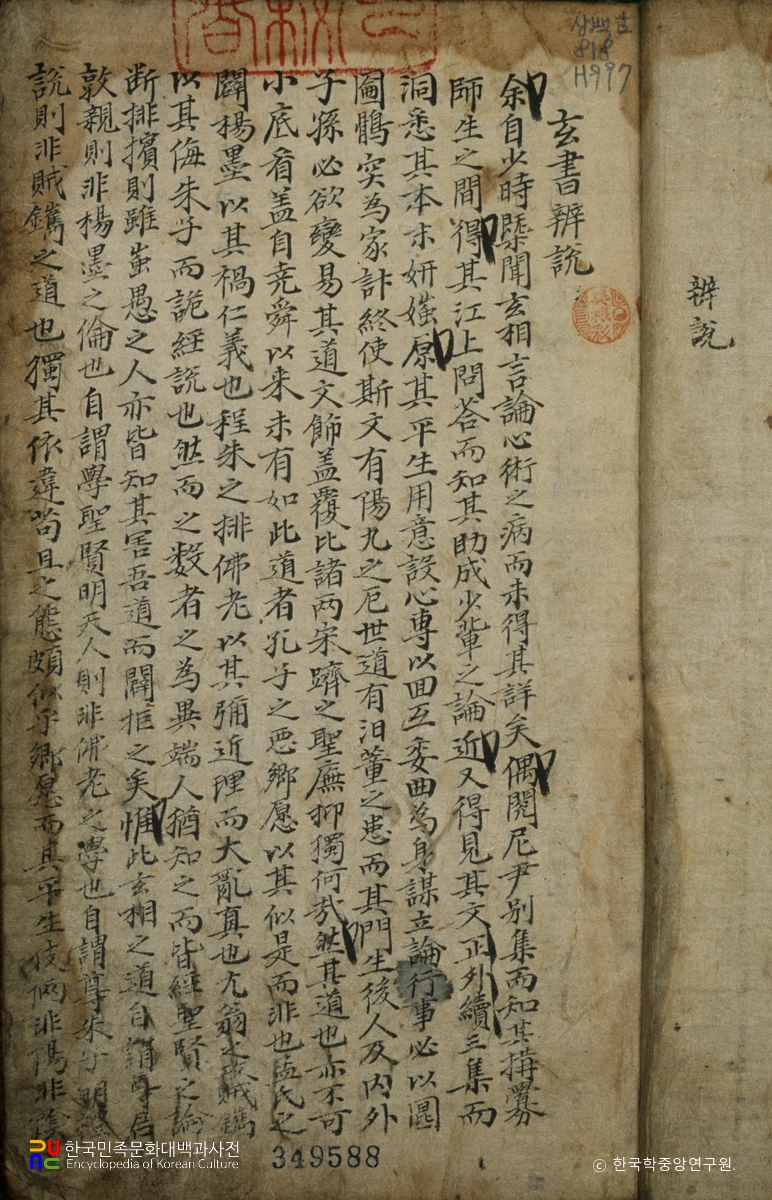 辨說
玄書辨說
余自少時槩聞玄相言論心術之病而未得其詳矣偶閱尼尹別集而知其搆釁
師生之間得其江上問答而知其助成少輩之論近又得見其文正外續三集而
洞悉其本末姸媸原其平生用意設心專以回互委曲爲身謀立論行事必以圓
圇鶻突為家計終使斯文有陽九之厄世道有汨董之患而其門生後人及內外
子孫必欲變易其道文飾盖覆比諸兩宋躋之聖廡抑獨何哉然其道也亦不可
小底看盖自堯舜以来未有如此道者孔子之惡鄉愿以其似是而非也孟氏之
闢楊墨以其禍仁義也程朱之排佛老以其彌近理而大亂真也尤翁之賊鑴
以其侮朱子而詭經說也然而之数者之為異端人猶知之而皆經聖賢之論
断排擯則雖蚩愚之人亦皆知其害吾道而闢拒之矣惟此玄相之道自謂尊君
敦親則非楊墨之倫也自謂學聖賢明天人則非佛老之學也自謂尊朱子明
說則非賊鑴之道也獨其依違苟且之態頗似乎鄉愿而其平生伎倆非陽非陰
상백고
818
H997
349588
한국민족문화대백과사전
Encyclopedia of Korean Culture
© 한국학중앙연구원